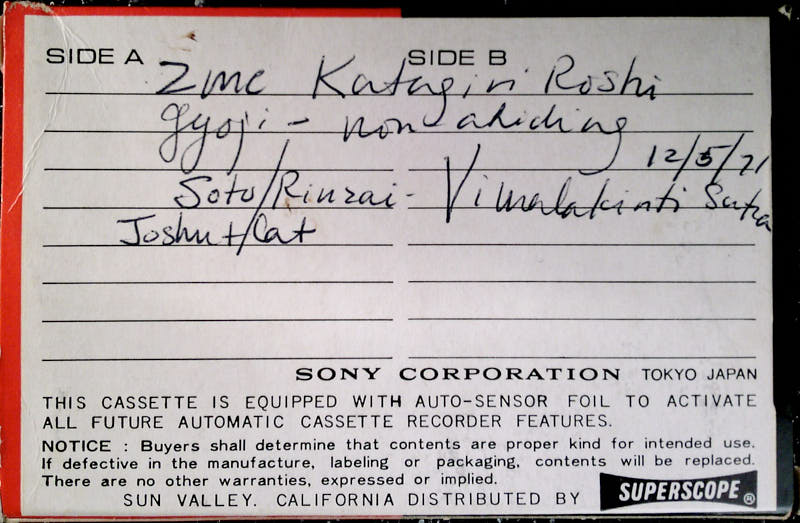 SIDE A SIDE B
ZMC Katagiri Roshi
gyoji - non-abiding
12/5/71
Soto/Rinzai - Vimalakirti Sutra
Joshu + Cat
SONY CORPORATION TOKYO JAPAN
THIS CASSETTE IS EQUIPPED WITH AUTO-SENSOR FOIL TO ACTIVATE
ALL FUTURE AUTOMATIC CASSETTE RECORDER FEATURES.
NOTICE : Buyers shall determine that contents are proper kind for intended use.
If defective in the manufacture, labeling or packaging, contents will be replaced.
There are no other warranties, expressed or implied.
SUN VALLEY. CALIFORNIA DISTRIBUTED BY SUPERSCOPE®